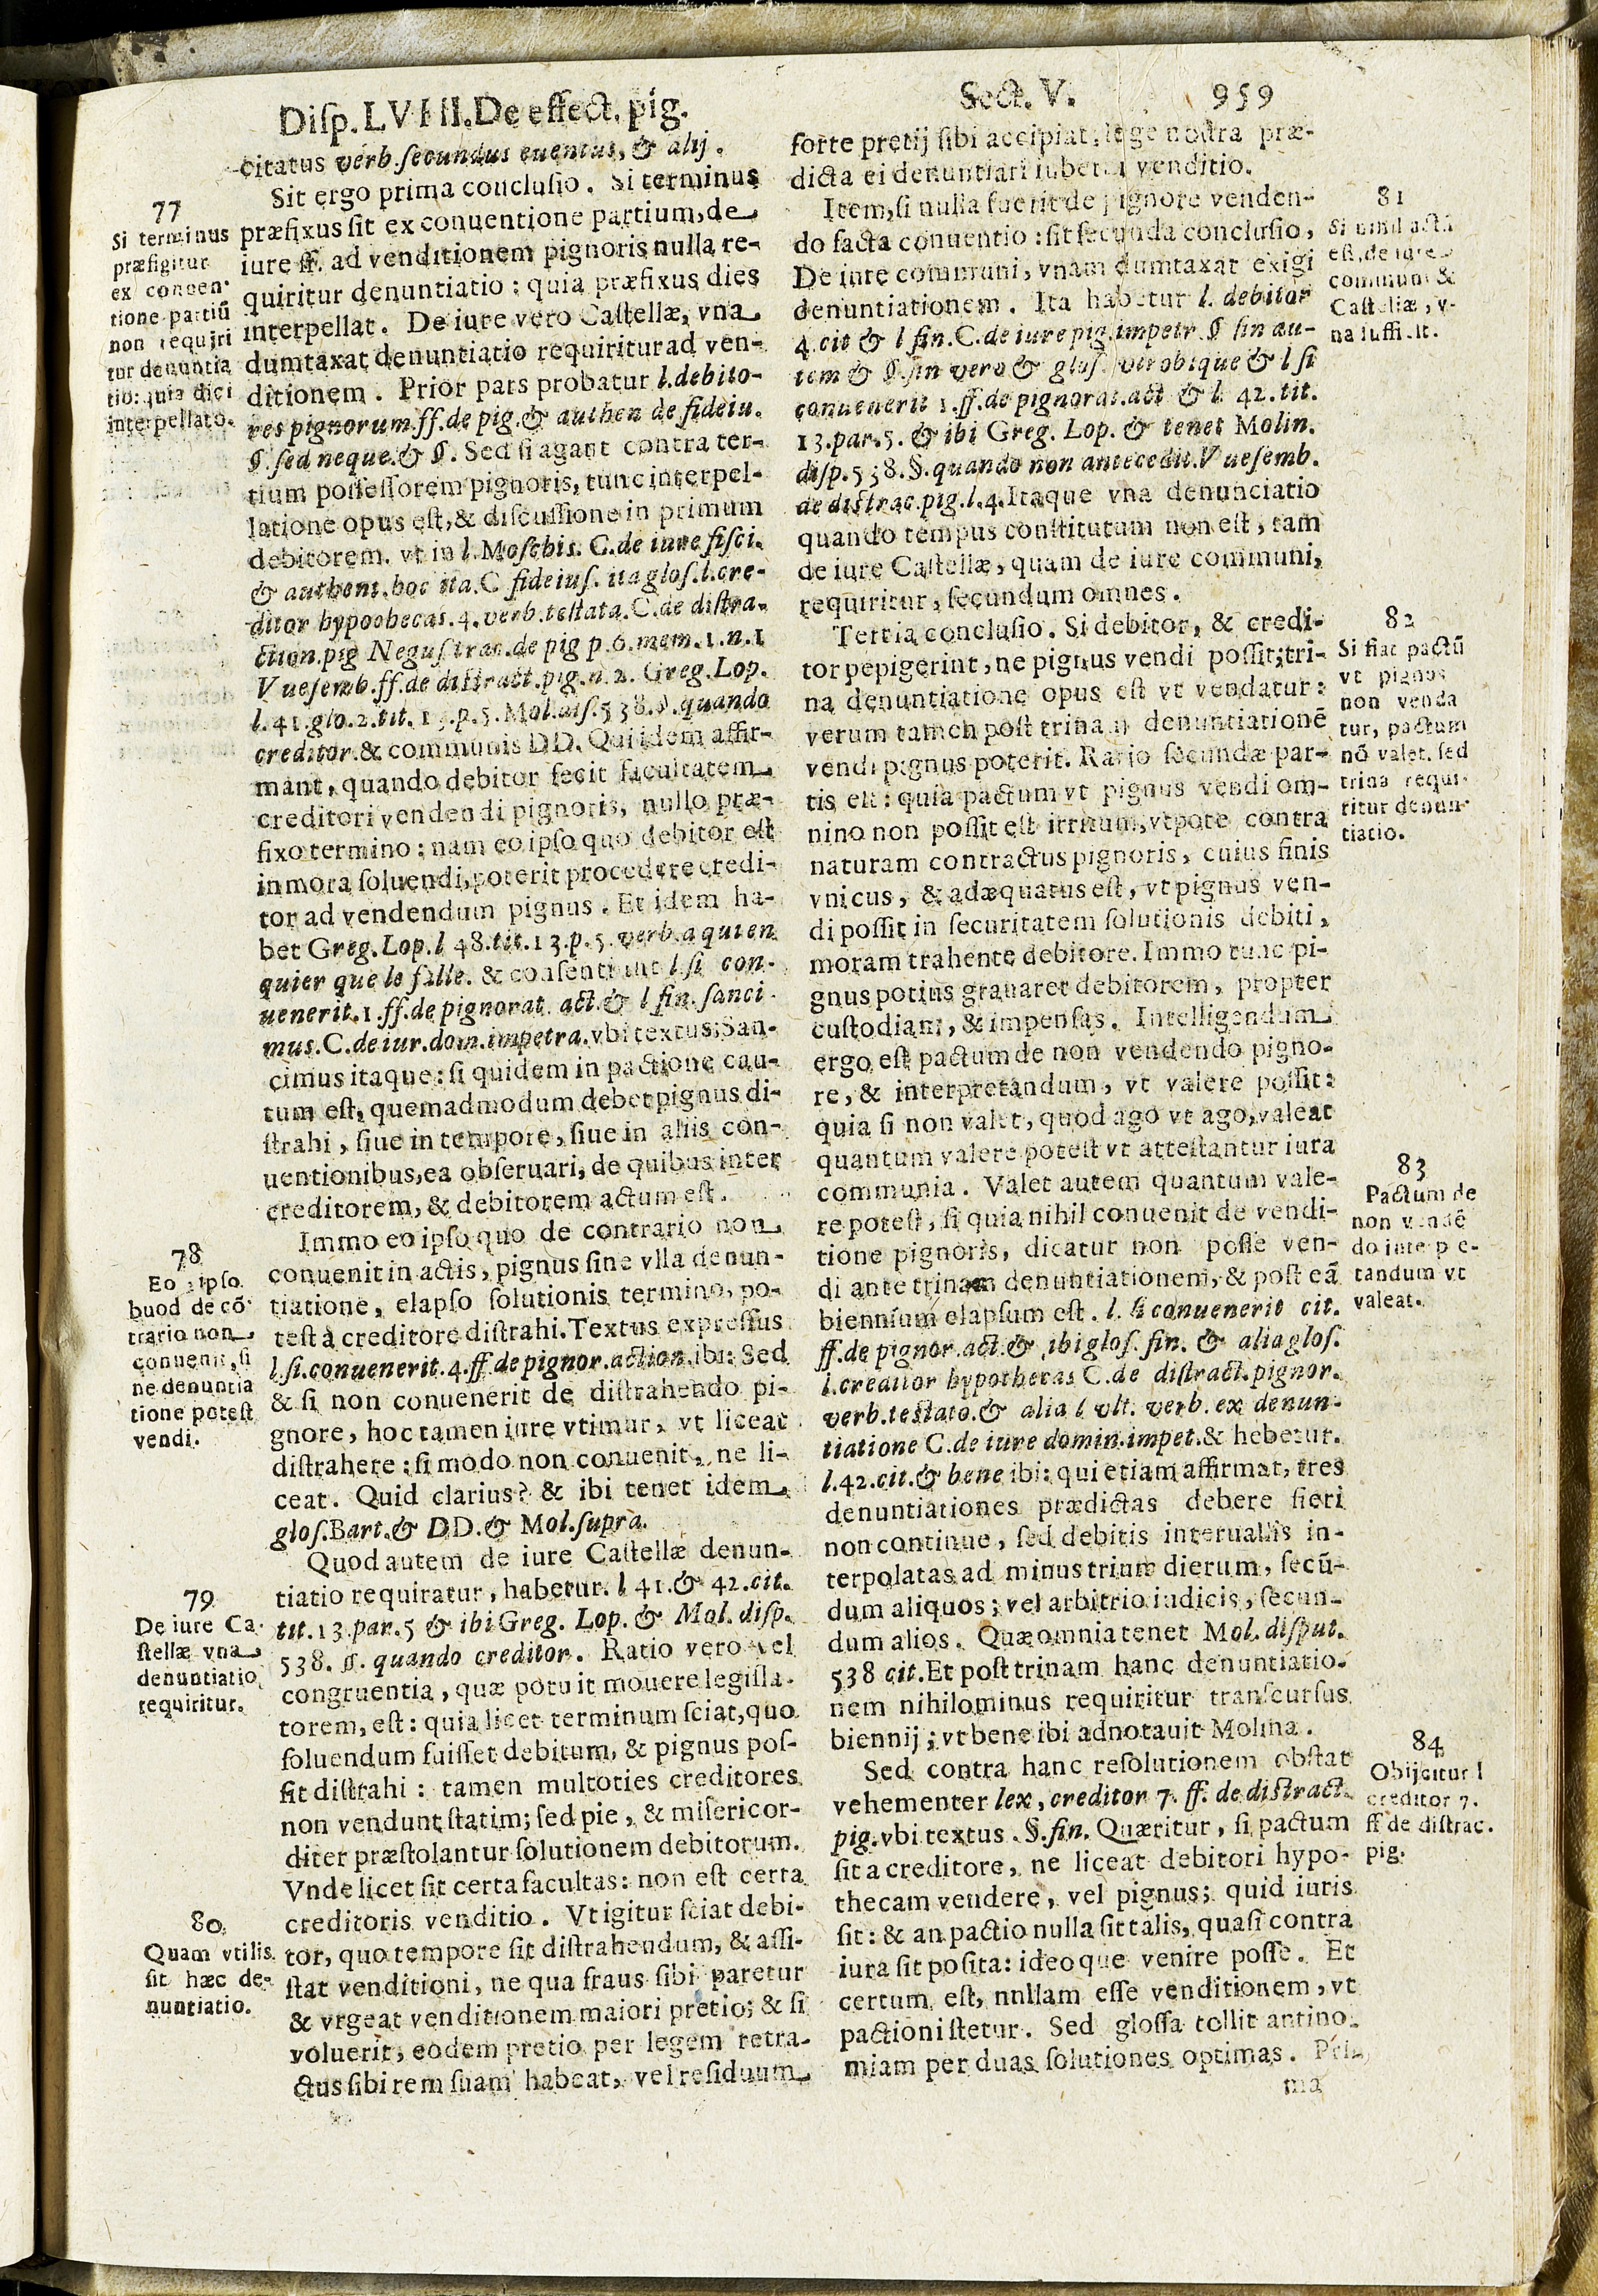 Disp. LVIII. De effect. pig.
Sect. V.
959
citatus verb. secundus euentus, & alij.
Sit ergo prima conclusio. Si terminus
præfixus sit ex conuentione partium, de
iure ff. ad venditionem pignoris nulla re-
quiritur denuntiatio: quia præfixus dies
interpellat. De iure vero Castellæ, vna
dumtaxat denuntiatio requiritur ad ven-
ditionem. Prior pars probatur l. debito-
res pignorum. ff. de pig. & authen de fideiu.
§. sed neque. & §. Sed si agant contra ter-
tium possessorem pignoris, tunc interpel-
latione opus est, & discussione in primum
debitorem. vt in l. Moschis. C. de iure fisci.
& authent. hoc ita. C fideius. ita glos. l. cre-
ditor hypothecas. 4. verb. testata. C. de distra-
ction. pig Negus trac. de pig p. 6. mem. 1. n. 1
Vuesemb. ff. de distract. pig. n. 2. Greg. Lop.
l. 41. glo. 2. tit. 13. p. 5. Mol. dis. 538. §. quando
creditor. & communis DD. Qui idem affir-
mant, quando debitor fecit facultatem
creditori vendendi pignoris, nullo præ-
fixo termino: nam eo ipso quo debitor est
in mora soluendi, poterit procedere credi-
tor ad vendendum pignus. Et idem ha-
bet Greg. Lop. l 48. tit. 13. p. 5. verb. a quien
quier que lo falle. & consentiunt l. si con-
uenerit. 1. ff. de pignorat. act. & l fin. sanci-
mus. C. de iur. dom. impetra. vbi textus: San-
cimus itaque: si quidem in pactione cau-
tum est, quemadmodum debet pignus di-
strahi, siue in tempore, siue in aliis con-
uentionibus, ea obseruari, de quibus inter
creditorem, & debitorem actum est.
Immo eo ipso quo de contrario non
conuenit in actis, pignus sine vlla denun-
tiatione, elapso solutionis termino, po-
test à creditore distrahi. Textus expressus
l. si. conuenerit. 4. ff. de pignor. action. ibi: Sed
& si non conuenerit de distrahendo pi-
gnore, hoc tamen iure vtimur, vt liceat
distrahere: si modo non conuenit, ne li-
ceat. Quid clarius? & ibi tenet idem
glos. Bart. & DD. & Mol. supra.
Quod autem de iure Castellæ denun-
tiatio requiratur, habetur. l 41. & 42. cit.
tit. 13. par. 5 & ibi Greg. Lop. & Mol. disp.
538. §. quando creditor. Ratio vero vel
congruentia, quæ potuit mouere legisla-
torem, est: quia licet terminum sciat, quo
soluendum fuisset debitum, & pignus pos-
sit distrahi: tamen multoties creditores
non vendunt statim; sed pie, & misericor-
diter præstolantur solutionem debitorum.
Vnde licet sit certa facultas: non est certa
creditoris venditio. Vt igitur sciat debi-
tor, quo tempore sit distrahendum, & assi-
stat venditioni, ne qua fraus sibi paretur
& vrgeat venditionem maiori pretio; & si
voluerit, eodem pretio per legem retra-
ctus sibi rem suam habeat, vel residuum
77
Si terminus
præfigitur
ex conuen-
tione partiũ
non requiri
tur denuntia
tio: quia dies
interpellat.
78
Eo ipso
buod de cõ-
trario non
conuenit, si
ne denuntia
tione potest
vendi.
79
De iure Ca-
stellæ vna
denuntiatio
requiritur.
80
Quam vtilis
sit hæc de-
nuntiatio.
forte pretij sibi accipiat, lege nostra præ-
dicta ei denuntiari iubetur venditio.
Item, si nulla fuerit de pignore venden-
do facta conuentio: sit secunda conclusio,
De iure communi, vnam dumtaxat exigi
denuntiationem. Ita habetur l. debitor
4. cit & l fin. C. de iure pig. impetr. § sin au-
tem & §. sin vero & glos. vtrobique & l si
conuenerit 1. ff. de pignorat. act & l. 42. tit.
13. par. 5. & ibi Greg. Lop. & tenet Molin.
disp. 538. §. quando non antecedit. Vuesemb.
de distrac. pig. l. 4. Itaque vna denunciatio
quando tempus constitutum non est, tam
de iure Castellæ, quam de iure communi,
requiritur, secundum omnes.
Tertia conclusio. Si debitor, & credi-
tor pepigerint, ne pignus vendi possit; tri-
na denuntiatione opus est vt vendatur:
verum tamen post trinam denuntiationẽ
vendi pignus poterit. Ratio secundæ par-
tis est: quia pactum vt pignus vendi om-
nino non possit est irritum, vtpote contra
naturam contractus pignoris, cuius finis
vnicus, & adæquatus est, vt pignus ven-
di possit in securitatem solutionis debiti,
moram trahente debitore. Immo tunc pi-
gnus potius grauaret debitorem, propter
custodiam, & impensas. Intelligendum
ergo est pactum de non vendendo pigno-
re, & interpretandum, vt valere possit:
quia si non valet, quod ago vt ago, valeat
quantum valere potest vt attestantur iura
communia. Valet autem quantum vale-
re potest, si quia nihil conuenit de vendi-
tione pignoris, dicatur non posse ven-
di ante trinam denuntiationem, & post eã
biennium elapsum est. l. si conuenerit cit.
ff. de pignor. act. & ibi glos. fin. & alia glos.
l. creditor hypothecas C. de distract. pignor.
verb. testato. & alia l vlt. verb. ex denun-
tiatione C. de iure domin. impet. & hebetur.
l. 42. cit. & bene ibi: qui etiam affirmat, tres
denuntiationes prædictas debere fieri
non continue, sed debitis interuallis in-
terpolatas ad minus trium dierum, secũ-
dum aliquos; vel arbitrio iudicis, secun-
dum alios. Quæ omnia tenet Mol. disput.
538 cit. Et post trinam hanc denuntiatio-
nem nihilominus requiritur transcursus
biennij; vt bene ibi adnotauit Molina.
Sed contra hanc resolutionem obstat
vehementer lex, creditor 7. ff. de distract.
pig. vbi textus. §. fin. Quæritur, si pactum
sit a creditore, ne liceat debitori hypo-
thecam vendere, vel pignus; quid iuris
sit: & an pactio nulla sit talis, quasi contra
iura sit posita: ideoque venire posse. Et
certum est, nnllam esse venditionem, vt
pactioni stetur. Sed glossa tollit antino-
miam per duas solutiones optimas. Pri-
ma
81
Si nihil actũ
est, de iure
communi &
Castellæ, v-
na suffi it.
82
Si fiat pactũ
vt pignus
non venda
tur, pactum
nõ valet, sed
trina requi-
ritur denun-
tiatio.
83
Pactum de
non vendẽ
do interpre-
tandum vt
valeat.
84
Obijcitur l
creditor 7.
ff de distrac.
pig.